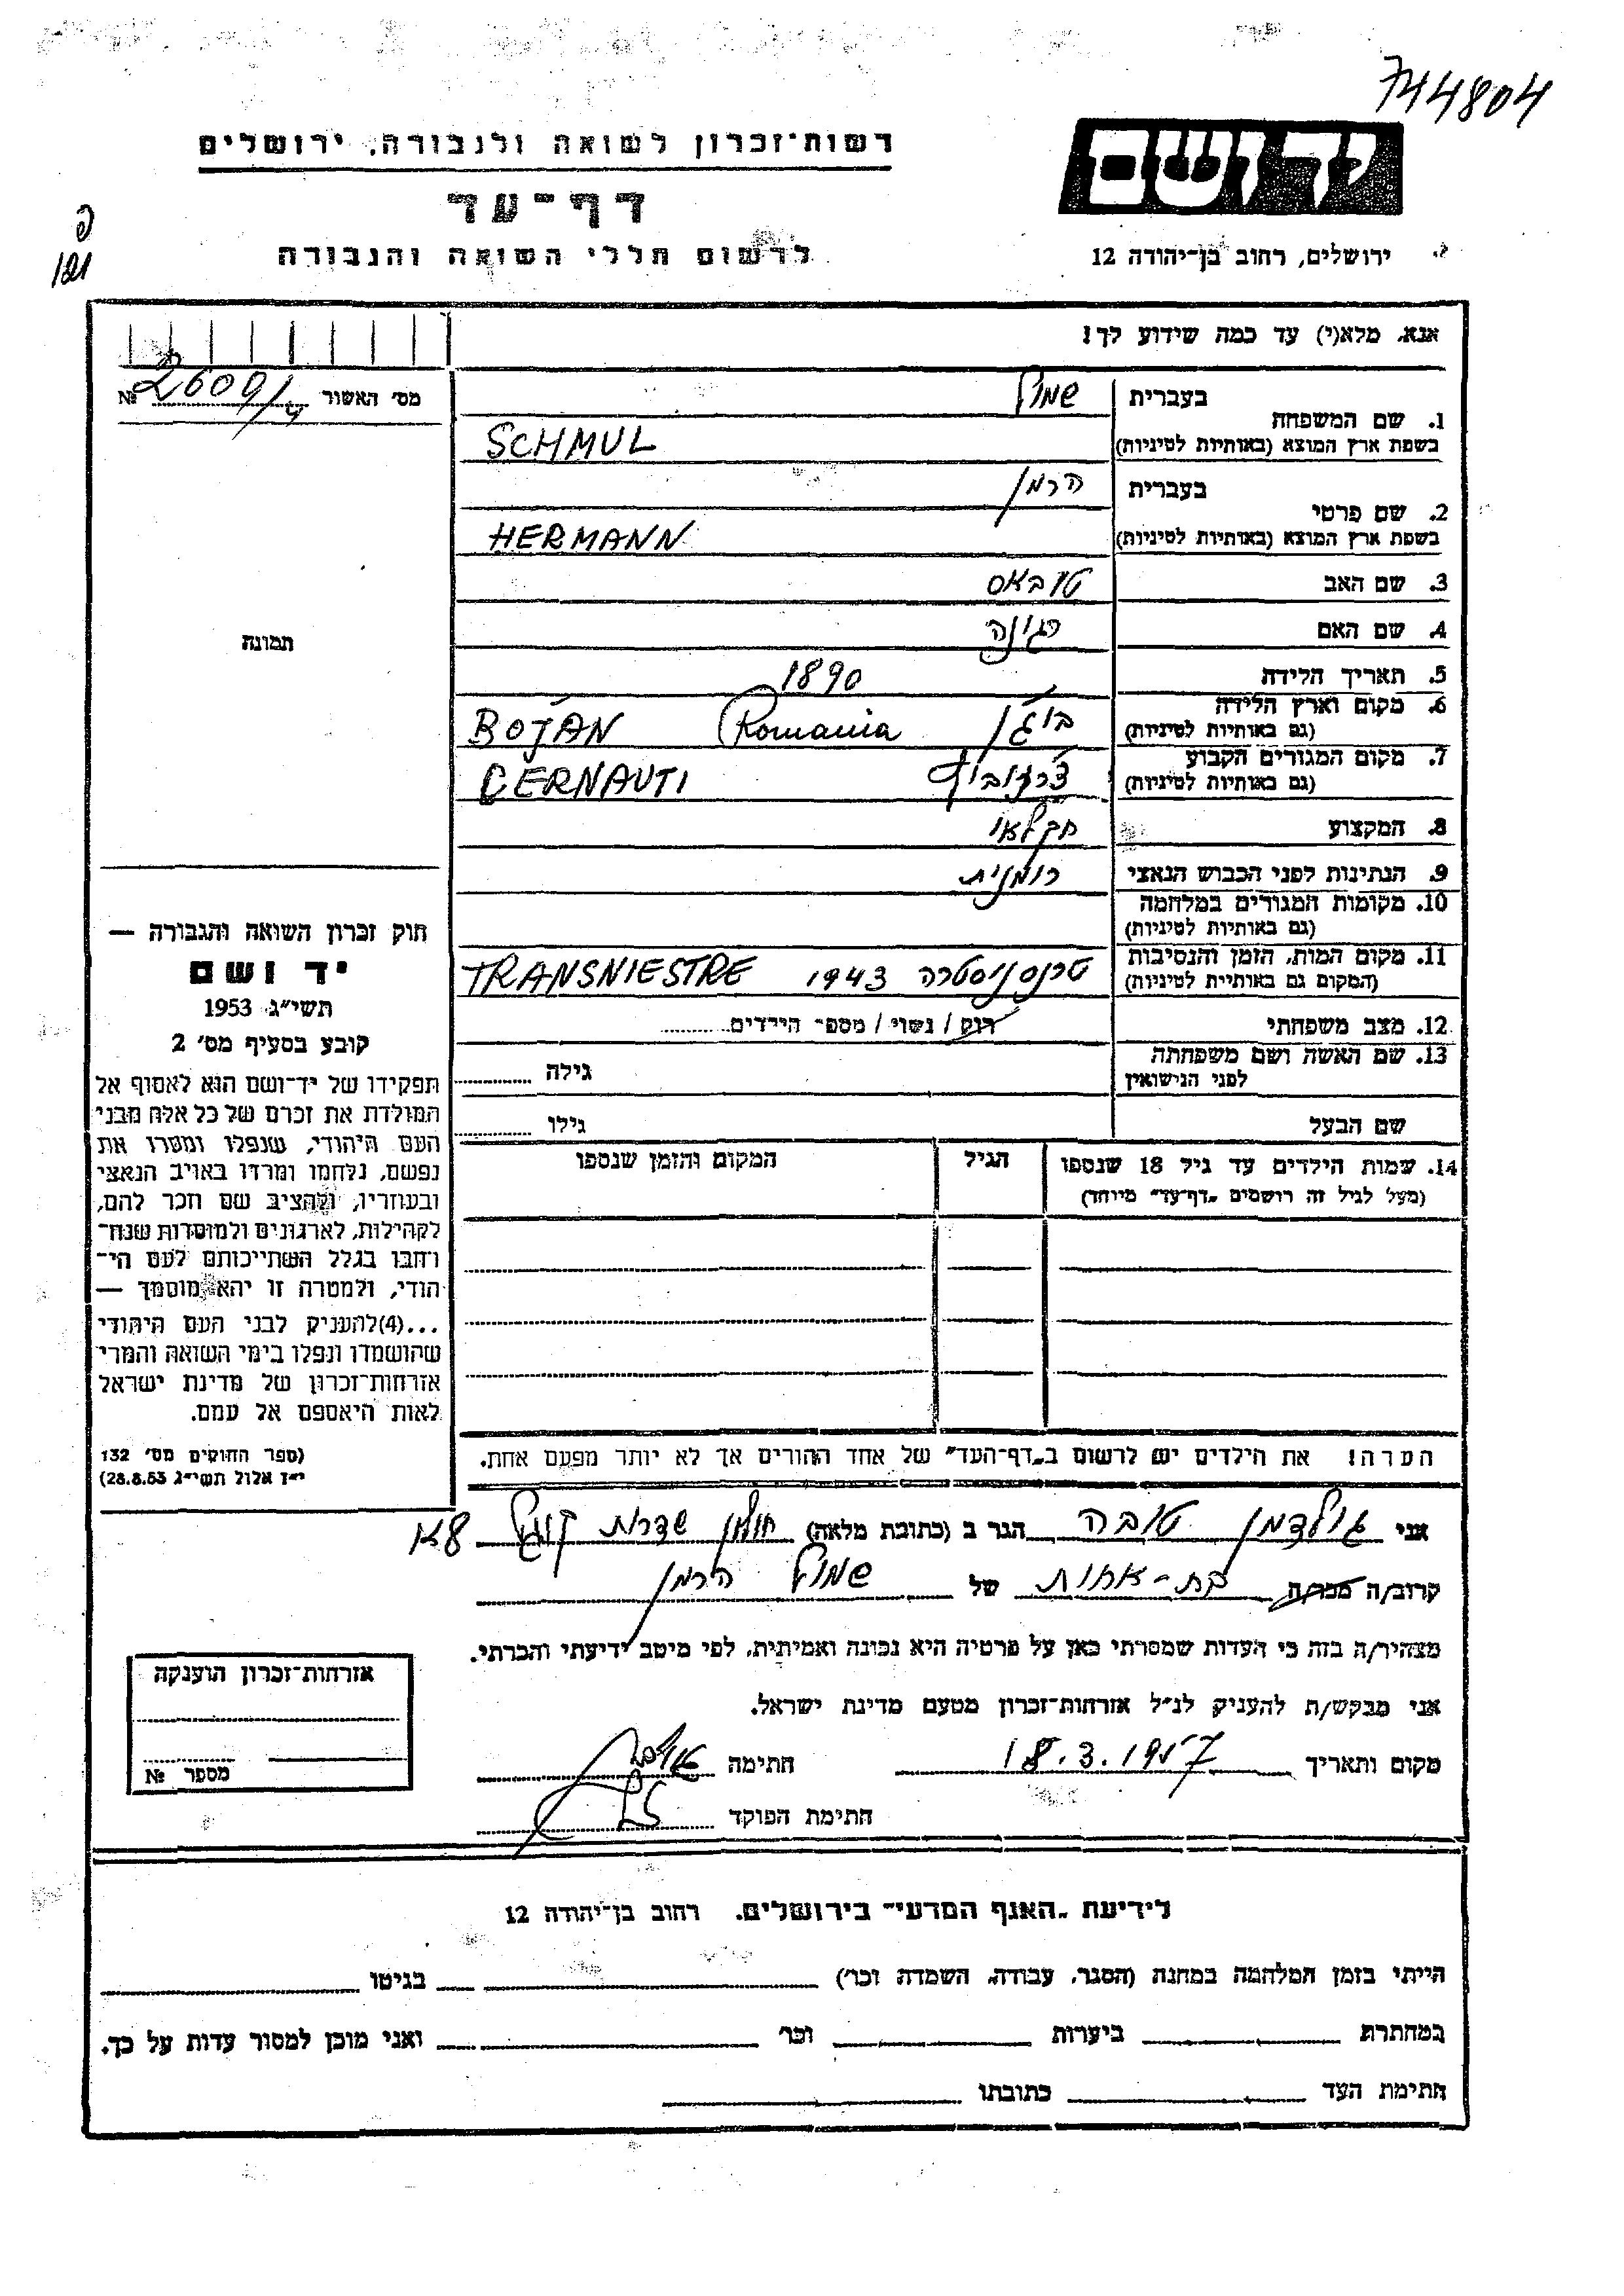 744804
יד ושם
ירושלים, רחוב בן־יהודה 12
רשות־זכרון לשואה ולגבורה, ירושלים
דף־עד
לרשום חללי השואה והגבורה
פ
121
אנא, מלא(י) עד כמה שידוע לך!
מס׳ האשור № 2609/4
תמונה
1. שם המשפחה בעברית שמול
בשפת ארץ המוצא (באותיות לטיניות) SCHMUL
2. שם פרטי בעברית הרמן
בשפת ארץ המוצא (באותיות לטיניות) HERMANN
3. שם האב טובאס
4. שם האם רגינה
5. תאריך הלידה 1890
6. מקום וארץ הלידה (גם באותיות לטיניות) בוג'ן Romania BOJAN
7. מקום המגורים הקבוע (גם באותיות לטיניות) CERNAUTI
8. המקצוע חקלאי
9. הנתינות לפני הכבוש הנאצי רומנית
10. מקומות המגורים במלחמה (גם באותיות לטיניות)
11. מקום המות, הזמן והנסיבות (המקום גם באותיות לטיניות) טרנסניסטרה 1943 TRANSNIESTRE
12. מצב משפחתי רוק / נשוי / מספר הילדים
13. שם האשה ושם משפחתה לפני הנישואין גילה
שם הבעל גילו
14. שמות הילדים עד גיל 18 שנספו הגיל המקום והזמן שנספו
(מעל לגיל זה רושמים „דף־עד״ מיוחד)
הערה! את הילדים יש לרשום ב„דף־העד״ של אחד ההורים אך לא יותר מפעם אחת.
חוק זכרון השואה והגבורה —
יד ושם
תשי״ג 1953
קובע בסעיף מס׳ 2
תפקידו של יד־ושם הוא לאסוף אל
המולדת את זכרם של כל אלה מבני
העם היהודי, שנפלו ומסרו את
נפשם, נלחמו ומרדו באויב הנאצי
ובעוזריו, ולהציב שם וזכר להם,
לקהילות, לארגונים ולמוסדות שנח־
רחבו בגלל השתייכותם לעם הי־
הודי, ולמטרה זו יהא מוסמך —
...(4)להעניק לבני העם היהודי
שהושמדו ונפלו בימי השואה והמרי
אזרחות־זכרון של מדינת ישראל
לאות היאספם אל עמם.
(ספר החוקים מס׳ 132
י״ז אלול תשי״ג 28.8.53)
אני גולדמן טובה הגר ב (כתובת מלאה) חולון שדרות קוגל 8א
קרוב/ה מכר/ה בת-אחות של שמול הרמן
מצהיר/ה בזה כי העדות שמסרתי כאן על פרטיה היא נכונה ואמיתית, לפי מיטב ידיעתי והכרתי.
אני מבקש/ת להעניק לנ״ל אזרחות־זכרון מטעם מדינת ישראל.
מקום ותאריך 18.3.1957 חתימה
חתימת הפוקד
אזרחות־זכרון הוענקה
מספר №
לידיעת „האגף המדעי״ בירושלים, רחוב בן־יהודה 12
הייתי בזמן המלחמה במחנה (הסגר, עבודה, השמדה וכו׳) בגיטו
במחתרת ביערות וכו׳ ואני מוכן למסור עדות על כך.
חתימת העד כתובתו